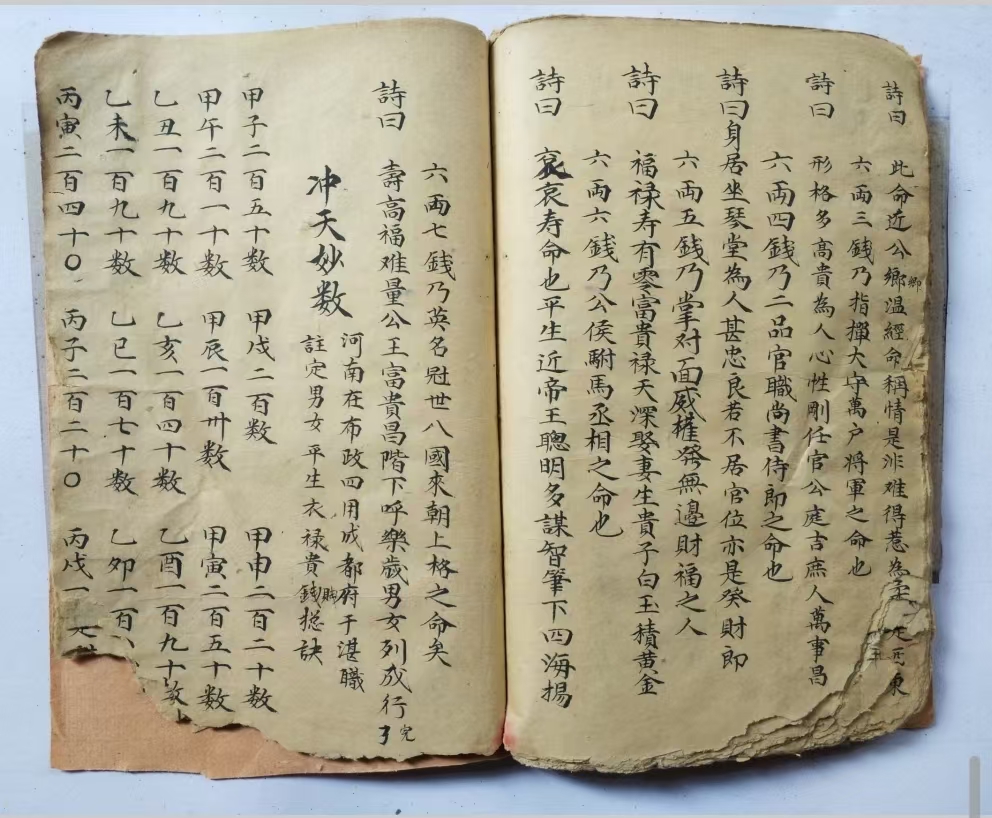 詩曰 此命近公鄉卿溫經命稱情是非难得惹為
六両三錢乃指揮大守萬户將軍之命也
詩曰 形格多高貴為人心性剛任官公庭吉庶人萬事昌
六両四錢乃二品官職尚書侍郎之命也
詩曰身居坐琴堂為人甚忠良若不居官位亦是癸財郎
六両五錢乃掌对面威權癸無邊財福之人
詩曰 福禄寿有零富貴禄天深娶妻生貴子白玉積黄金
六両六錢乃公侯駙馬丞相之命也
詩曰 哀哀寿命也平生近帝王聰明多謀智筆下四海揚
六両七錢乃英名冠世八國來朝上格之命矣
詩曰 壽高福难量公王富貴昌階下呼樂歲男女列成行 了完
冲天妙数
河南在布政四用成都府于湛職
註定男女平生衣禄貴錢賤捴訣
甲子二百五十数 甲戌二百数 甲申二百二十数
甲午二百一十数 甲辰一百卅数 甲寅二百五十数
乙丑一百九十数 乙亥一百四十数 乙酉一百九十数
乙未一百九十数 乙巳一百七十数 乙卯一百
丙寅二百四十〇 丙子二百二十〇 丙戌一